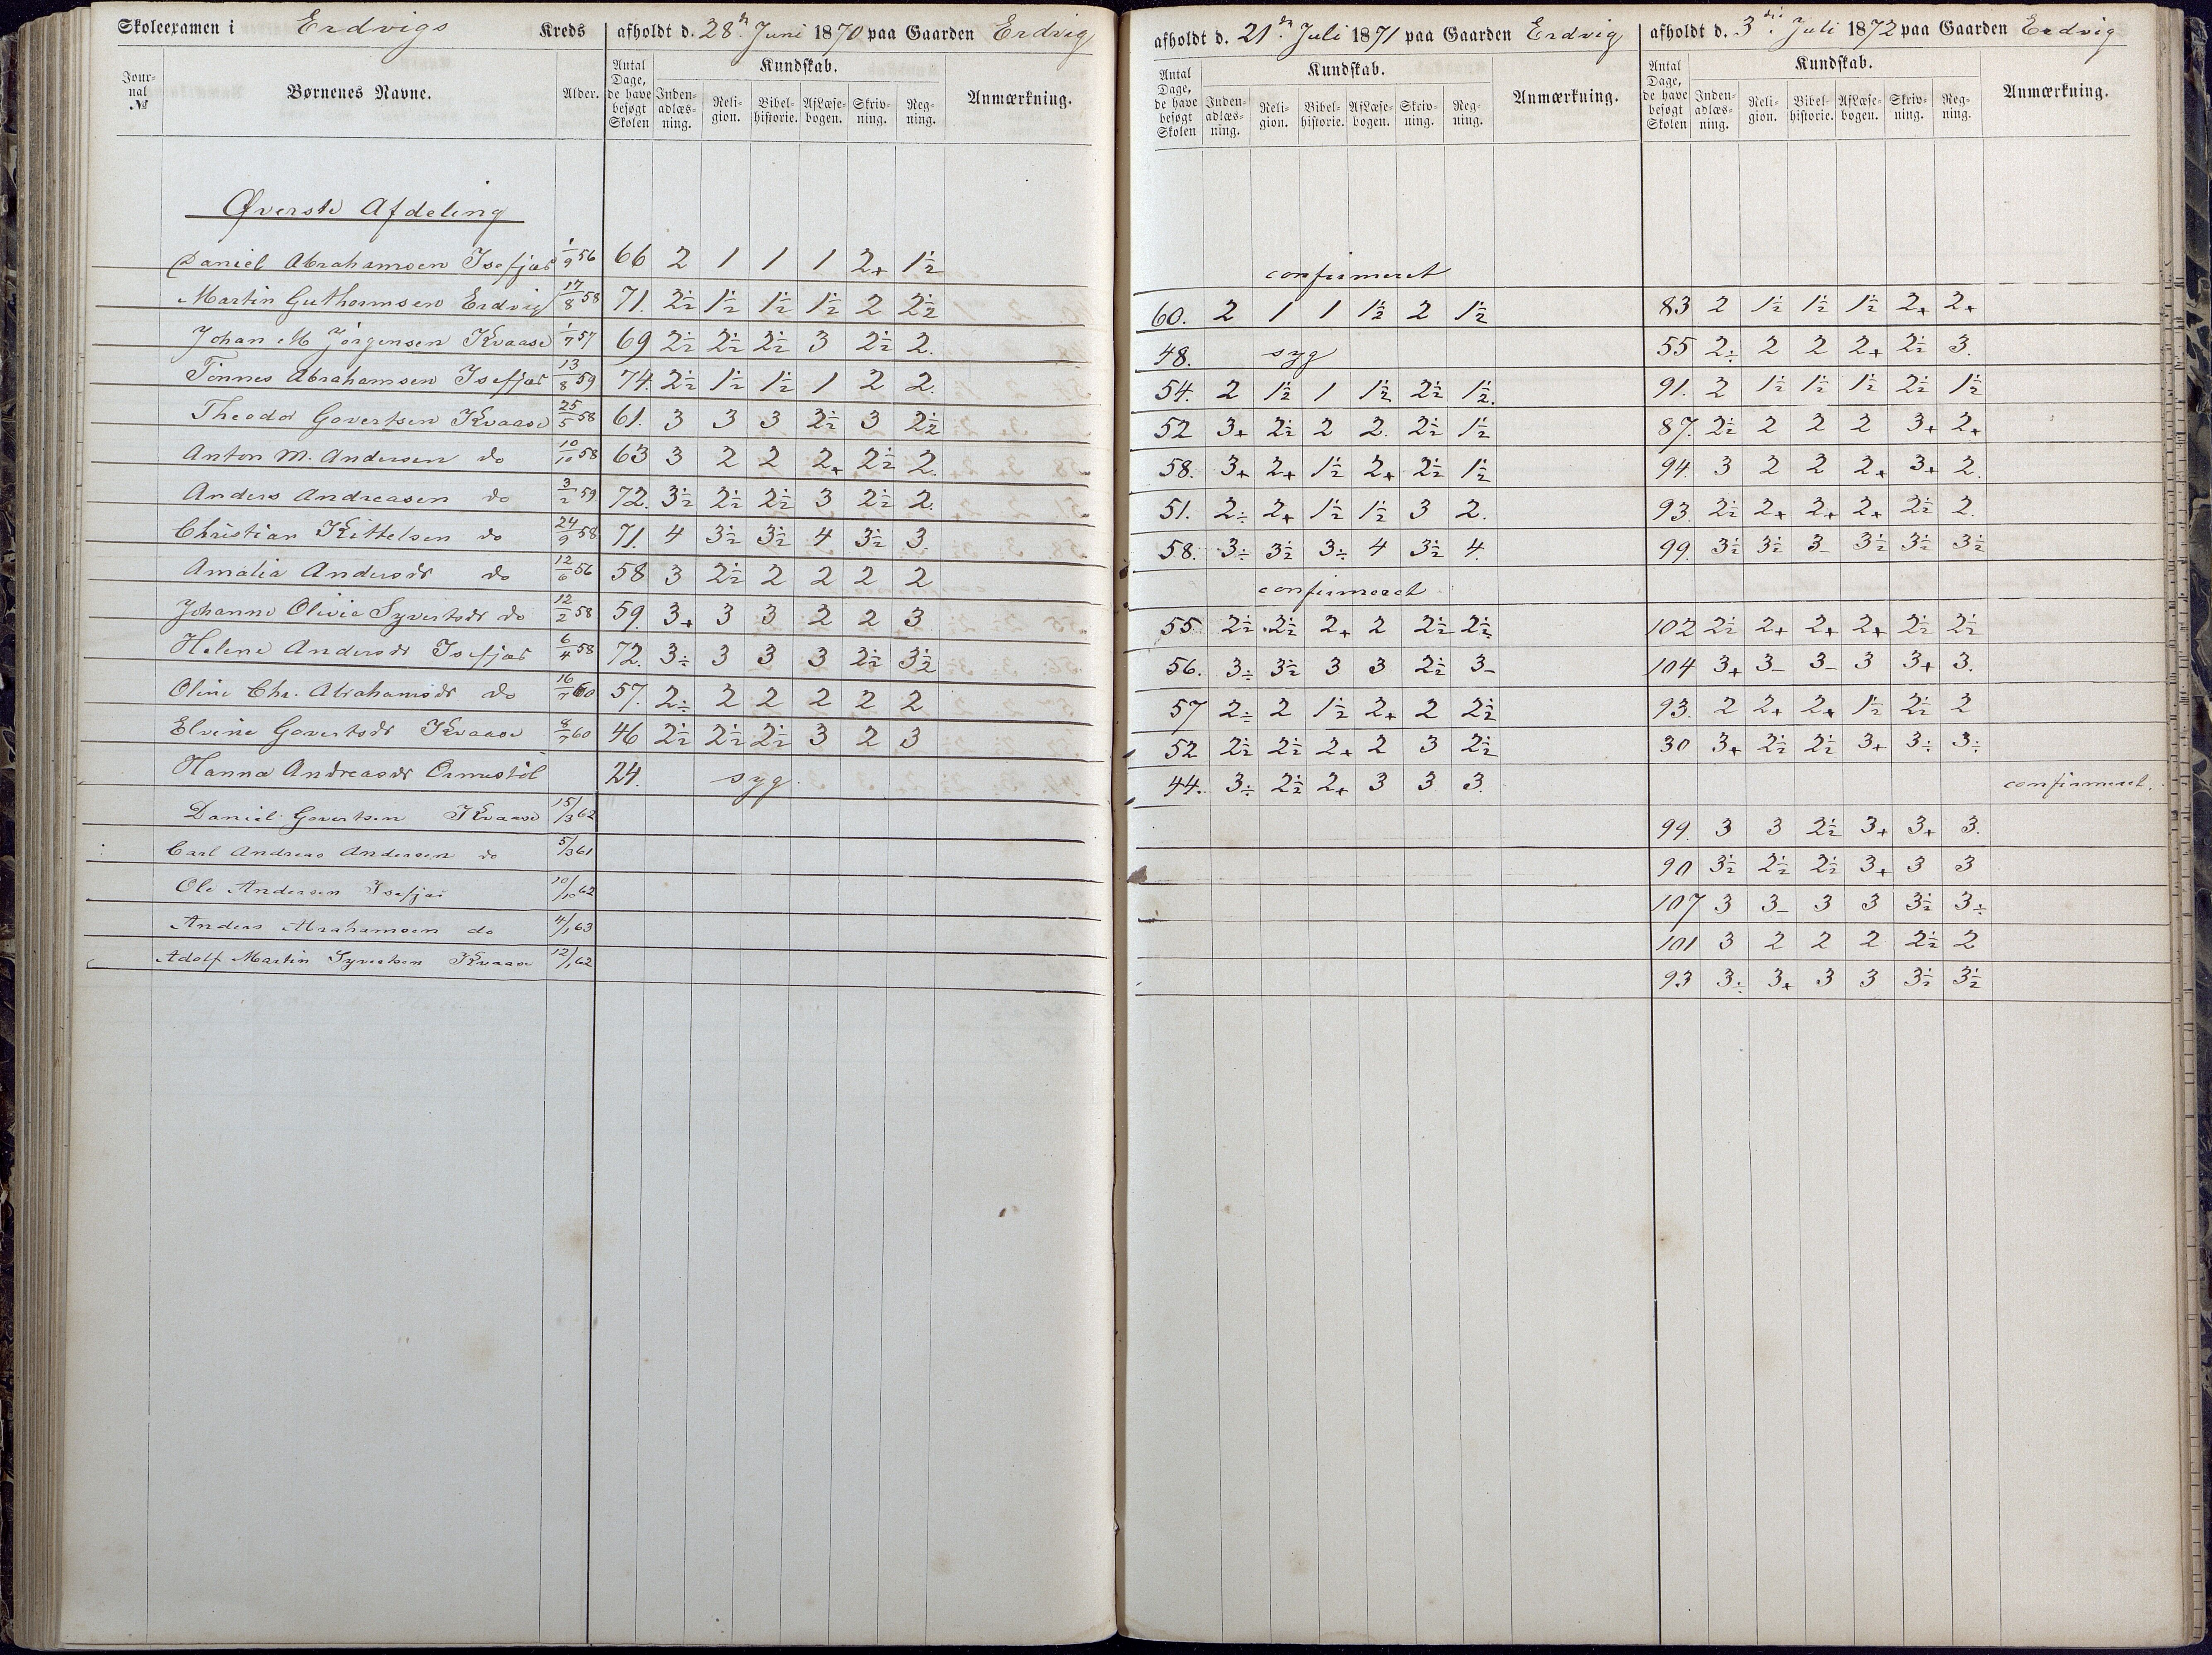 Skoleexamen i Erdvigs Kreds afholdt d. 28de Juni 1870 paa Gaarden Erdvig
Journal № Børnenes Navne. Alder. Antal Dage, de have besøgt Skolen Kundskab. Indenadlæsning. Religion. Bibelhistorie. Aflæsebogen. Skrivning. Regning. Anmærkning.
Øverste Afdeling
Daniel Abrahamsen Isefjær 1/9 56 66 2 1 1 1 2+ 1½
Martin Guthormsen Erdvig 17/8 58 71. 2½ 1½ 1½ 1½ 2 2½
Johan M Jörgensen Kvaase 1/7 57 69 2½ 2½ 2½ 3 2½ 2.
Tönnes Abrahamsen Isefjær 13/8 59 74. 2½ 1½ 1½ 1 2 2.
Theodor Govertsen Kvaase 25/5 58 61. 3 3 3 2½ 3 2½
Anton M. Andersen do 10/10 58 63 3 2 2 2+ 2½ 2.
Anders Andreasen do 3/2 59 72. 3½ 2½ 2½ 3 2½ 2.
Christian Kittelsen do 24/9 58 71. 4 3½ 3½ 4 3½ 3.
Amalia Andersdr do 12/6 56 58 3 2½ 2 2 2 2
Johanne Olivie Syvertsdr do 12/2 58 59. 3+ 3 3 2 2 3
Helene Andersdr Isefjær 6/4 58 72. 3÷ 3 3 3 2½ 3½
Oline Chr. Abrahamsdr do 16/7 60 57. 2÷ 2 2 2 2 2
Elvine Govertsdr Kvaase 8/7 60 46 2½ 2½ 2½ 3 2 3
Hanna Andreasdr Ormestöl 24. syg.
Daniel Govertsen Kvaase 15/3 62
Carl Andreas Andersen do 5/3 61
Ole Andersen Isefjær 10/10 62
Anders Abrahamsen do 4/1 63
Adolf Martin Syvertsen Kvaase 12/1 62
afholdt d. 21de Juli 1871 paa Gaarden Erdvig
Antal Dage, de have besøgt Skolen Kundskab. Indenadlæsning. Religion. Bibelhistorie. Aflæsebogen. Skrivning. Regning. Anmærkning.
confirmeret
60. 2 1 1 1½ 2 1½
48. syg
54. 2 1½ 1 1½ 2½ 1½.
52 3+ 2½ 2 2. 2½ 1½
58. 3+ 2+ 1½ 2+ 2½ 1½
51. 2÷ 2+ 1½ 1½ 3 2.
58. 3÷ 3½ 3÷ 4 3½ 4.
confirmeret
55 2½ 2½ 2+ 2 2½ 2½
56. 3÷ 3½ 3 3 2½ 3-
57 2÷ 2 1½ 2+ 2 2½
52 2½ 2½ 2+ 2 3 2½
44. 3÷ 2½ 2+ 3 3 3.
afholdt d. 3die Juli 1872 paa Gaarden Erdvig
Antal Dage, de have besøgt Skolen Kundskab. Indenadlæsning. Religion. Bibelhistorie. Aflæsebogen. Skrivning. Regning. Anmærkning.
83 2 1½ 1½ 1½ 2+ 2+
55 2÷ 2 2 2+ 2½ 3.
91. 2 1½ 1½ 1½ 2½ 1½
87. 2½ 2 2 2 3+ 2+
94. 3 2 2 2+ 3+ 2.
93. 2½ 2+ 2+ 2+ 2½ 2.
99. 3½ 3½ 3- 3½ 3½ 3½
102 2½ 2+ 2+ 2+ 2½ 2½
104 3+ 3- 3- 3 3+ 3.
93. 2 2+ 2+ 1½ 2½ 2
30 3+ 2½ 2½ 3+ 3÷ 3÷
confirmeret.
99. 3 3 2½ 3+ 3+ 3.
90 3½ 2½ 2½ 3+ 3 3
107 3 3- 3 3 3½ 3÷
101 3 2 2 2 2½ 2
93 3÷ 3+ 3 3 3½ 3½